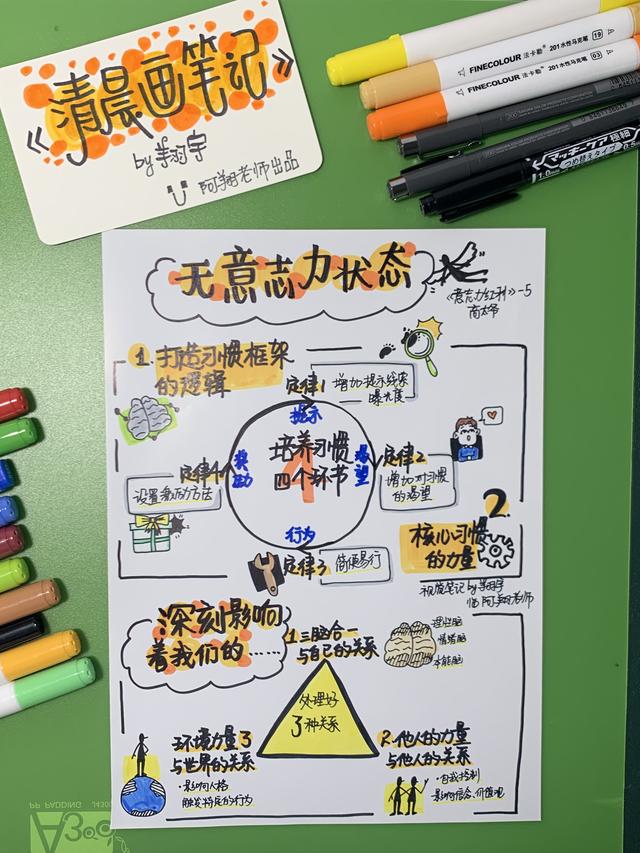 《清晨画笔记》
by 羊羽宇
阿翔老师出品
FINECOLOUR 法卡勒 201水性马克笔 19
FINECOLOUR 法卡勒 201水性马克笔 03
マッキーケア極細
つめ替えタイプ
1.0mm
0.5
无意志力状态
《意志力红利》-5
1.打造习惯框架
的逻辑
定律1
增加提示线索
曝光度
提示
培养习惯
四个环节
4
奖励
渴望
行为
定律2
增加对习惯
的渴望
定律4
设置奖励方法
定律3
简便易行
2.
核心习惯
的力量
视觉笔记by
临 阿翔老师
深刻影响
着我们的……
1.三脑合一
与自己的关系
理性脑
情绪脑
本能脑
处理好
3种关系
环境力量 3
与世界的关系
·影响人格
触发特定的行为
2.他人的力量
与他人的关系
·自我控制
·影响信念、价值观
PP PADDING